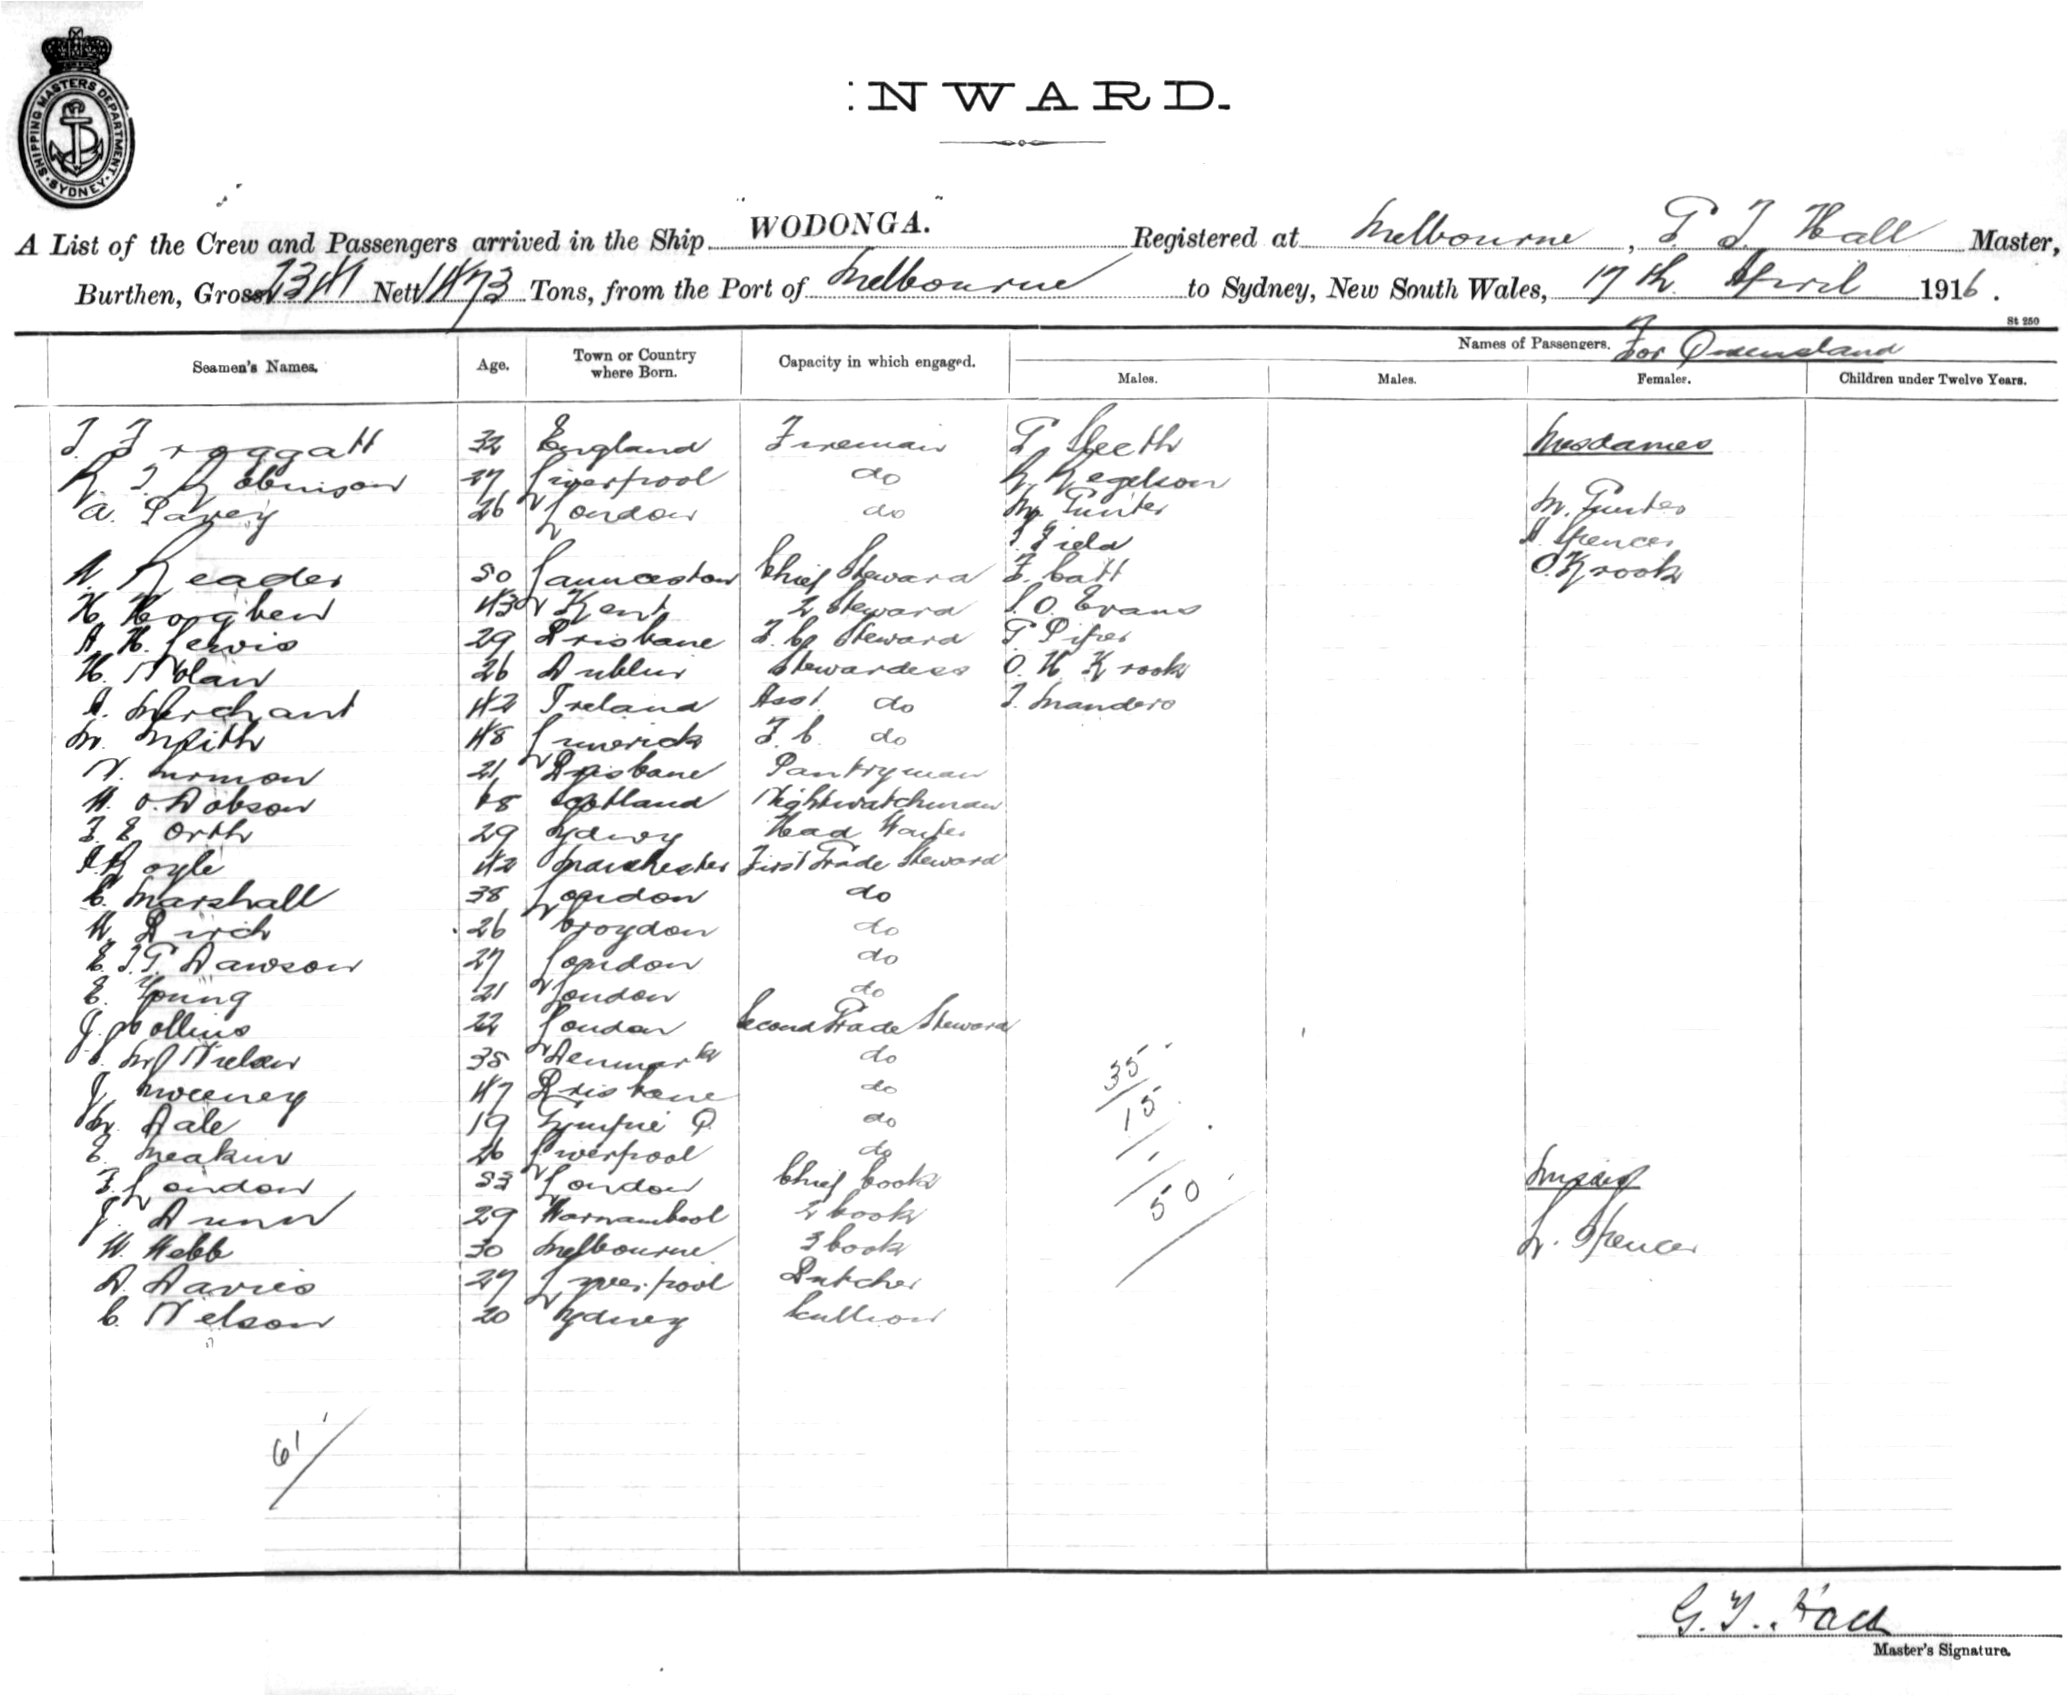 SHIPPING MASTERS DEPARTMENT. SYDNEY.
NWARD.
A List of the Crew and Passengers arrived in the Ship "WODONGA." Registered at Melbourne, G. T. Hall Master,
Burthen, Gross 2341 Nett 1473 Tons, from the Port of Melbourne to Sydney, New South Wales, 17th April 1916.
St 250
Names of Passengers. For Queensland
Seamen's Names. Age. Town or Country where Born. Capacity in which engaged. Males. Males. Females. Children under Twelve Years.
T. Froggatt 32 England Fireman G. Sleeth Mesdames
R. J. Robinson 27 Liverpool do
A. Pavey 26 London do M. Gunter M. Gunter
Field A Spencer
A. Reader 50 Launceston Chief Steward F. Catt O. Krook
H. Hogben 43 Kent 2 Steward S. O. Evans
A. H. Lewis 29 Brisbane F. C. Steward G. Piper
H. Nolan 26 Dublin Stewardess O. H. Krook
A. Merchant 42 Ireland Asst. do J. Manders
M. Smith 48 Limerick F. C. do
21 Brisbane Pantryman
Dobson Scotland Nightwatchman
F. E. Orth 29 Sydney Head Waiter
Boyle 42 Manchester First Grade Steward
C. Marshall 38 London do
W. Birch 26 Croydon do
E. J. G. Dawson 27 London do
E. Young 21 London do
J. Collins 22 London Second Grade Steward
Nielsen 35 Denmark do
J. Sweeney 47 Brisbane do
M. Dale 19 Gympie Q. do
E. Meakin 26 Liverpool do
F. London 53 London Chief Cook Misses
J. Dunn 29 Warnambool 2 Cook
W. Webb 30 Melbourne 3 Cook L. Spencer
D. Davies 27 Liverpool Butcher
C. Nelson 20 Sydney Scullion
35
15
50
61
G. T. Hall
Master's Signature.